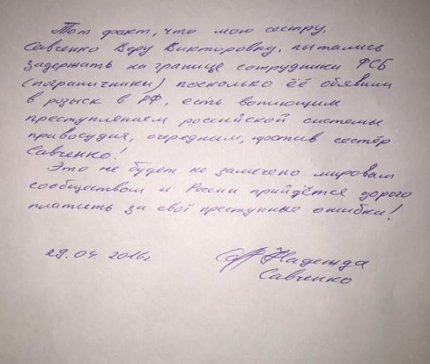 Тот факт, что мою сестру,
Савченко Веру Викторовну, пытались
задержать на границе сотрудники ФСБ
(пограничники) поскольку её объявили
в розыск в РФ, есть вопиющим
преступлением российской системы
правосудия, очередным, против сестёр
Савченко!
Это не будет не замечено мировым
сообществом и России прийдётся дорого
платить за свои преступные ошибки!
29.04.2016г
Надежда
Савченко